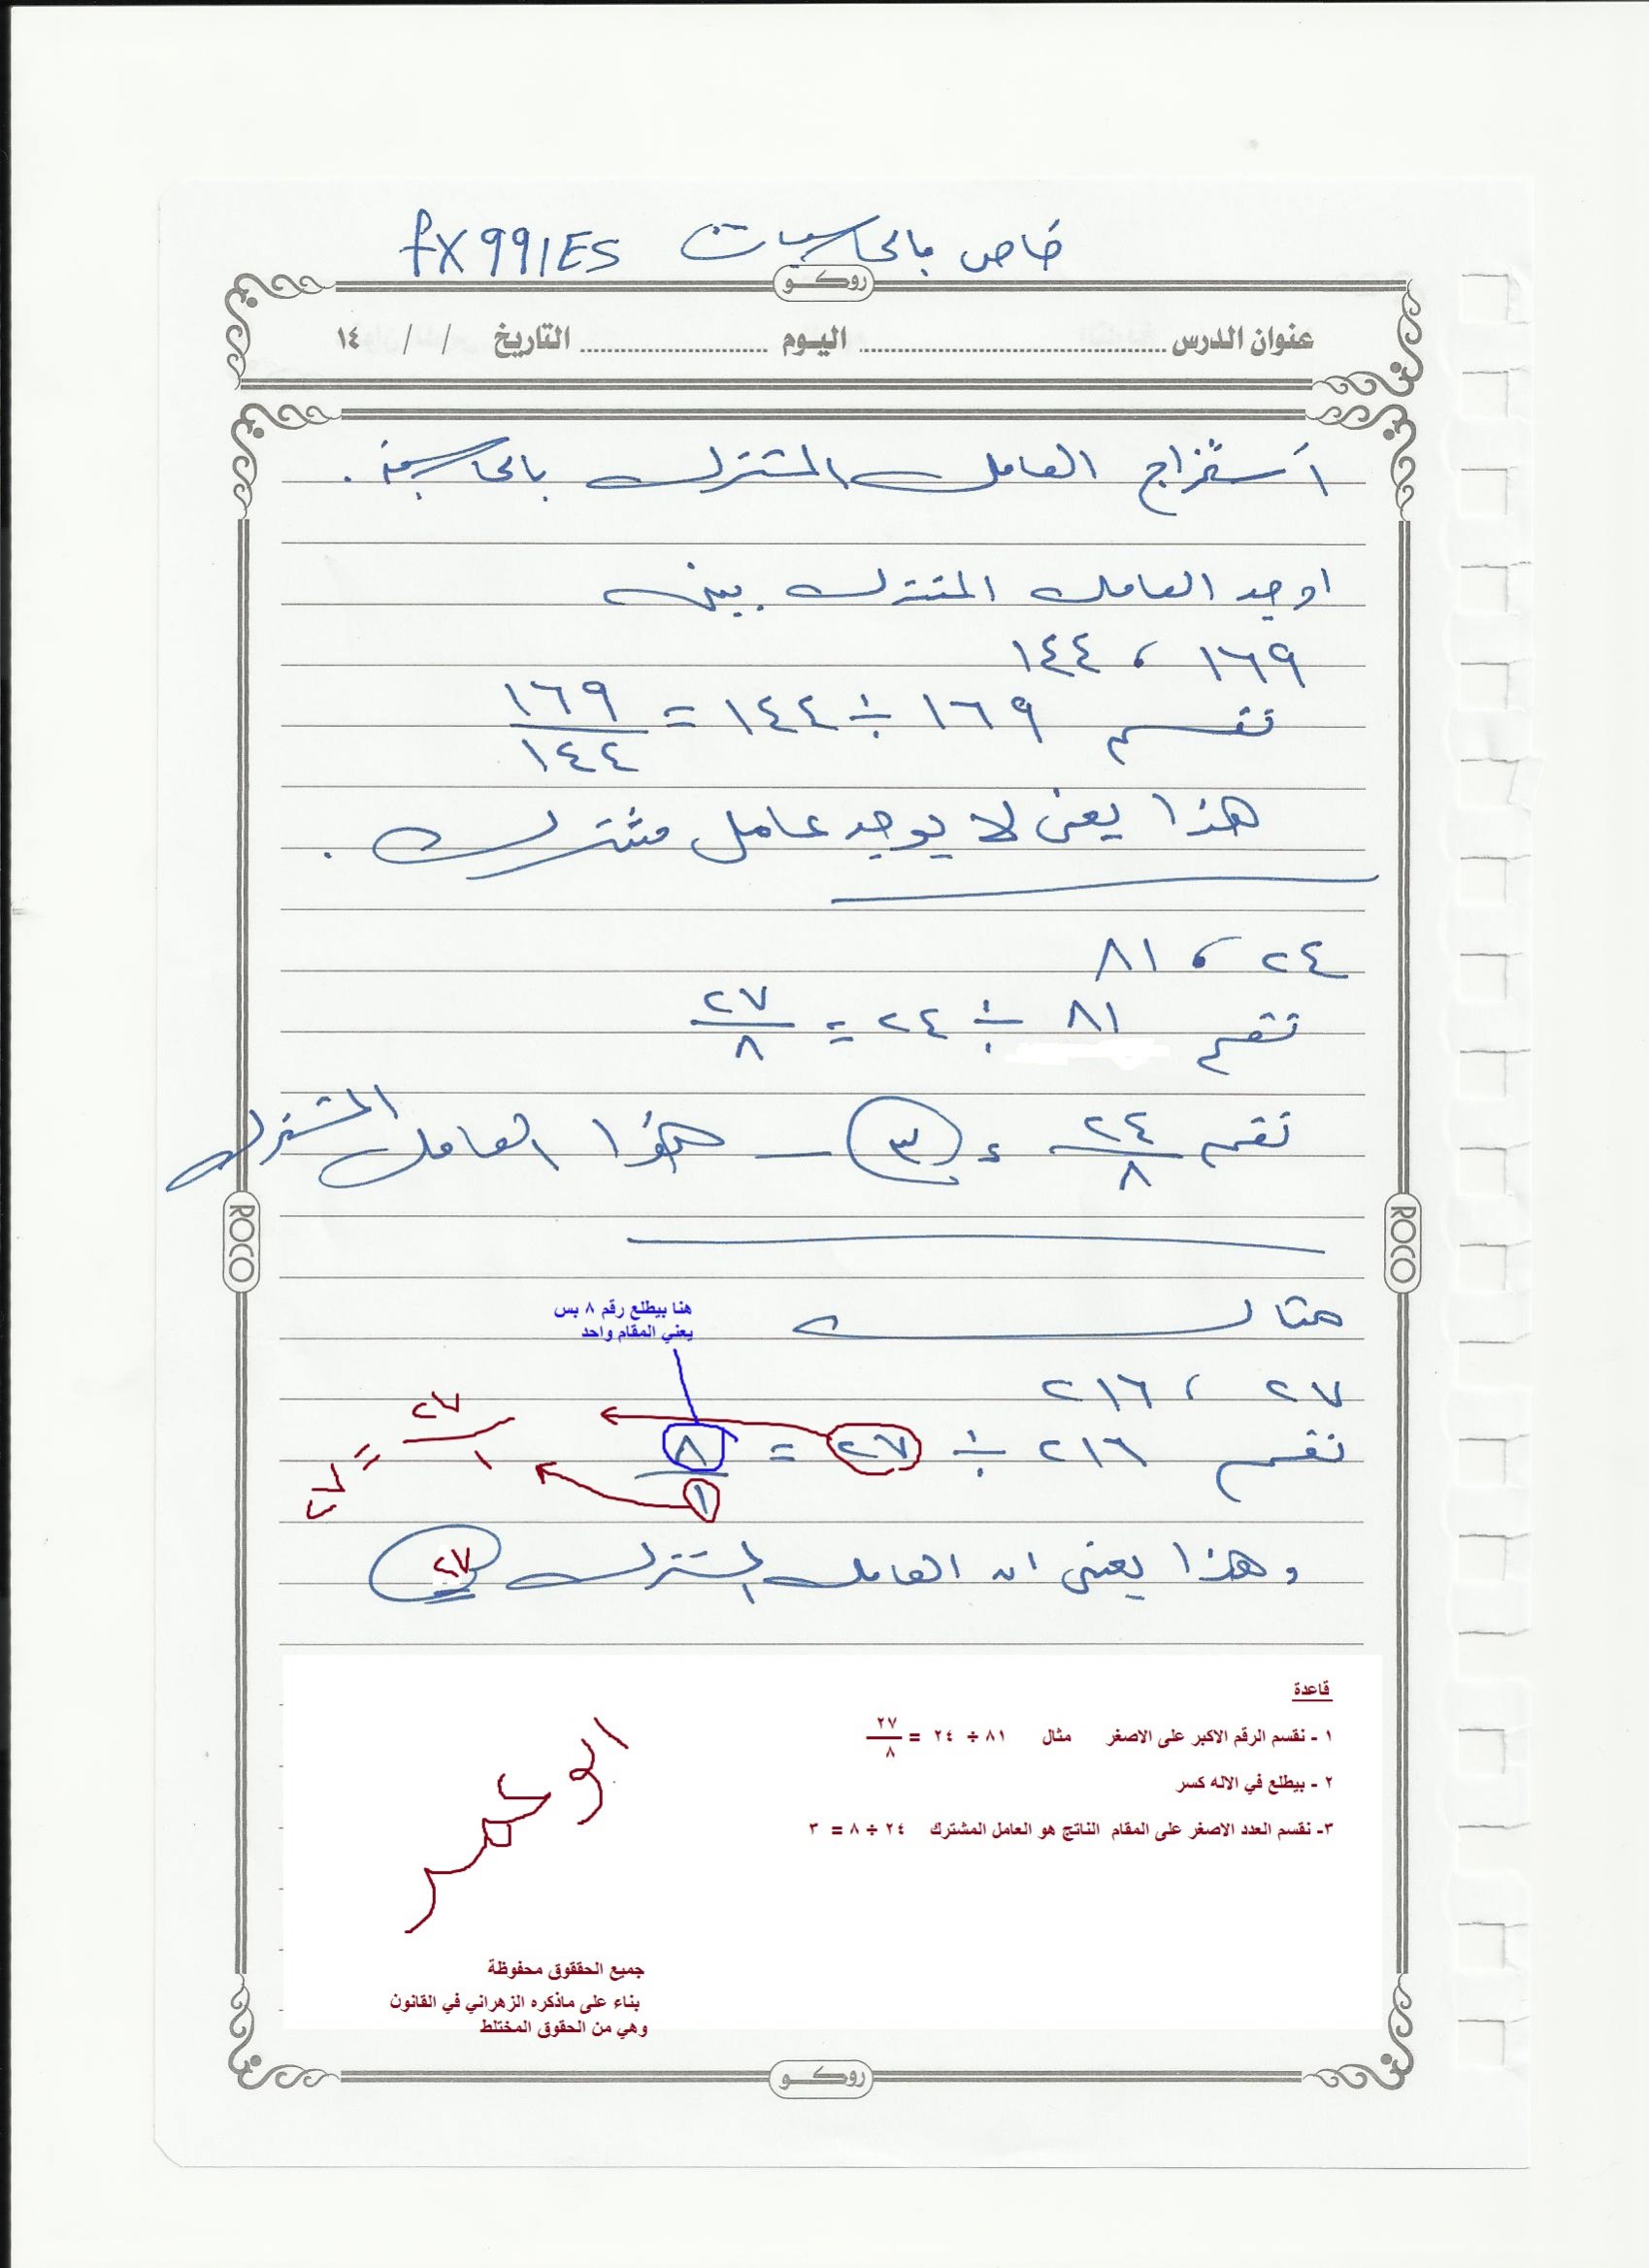 خاص بالحاسبات fx 991ES
روكو
عنوان الدرس ........................ اليوم ................ التاريخ / / ١٤
أستخراج العامل المشترك بالحاسبة .
اوجد العامل المشترك بين
١٦٩ ، ١٤٤
نقسم ١٦٩ ÷ ١٤٤ = ١٦٩/١٤٤
هذا يعني لا يوجد عامل مشترك .
٢٤ ، ٨١
نقسم ٨١ ÷ ٢٤ = ٢٧/٨
نقسم ٢٤/٨ = ٣ هذا العامل المشترك
ROCO
ROCO
هنا بيطلع رقم ٨ بس
يعني المقام واحد
مثال
٢٧ ، ٢١٦
نقسم ٢١٦ ÷ ٢٧ = ٨/١
٢٧/١ = ٢٧
وهذا يعني ان العامل المشترك ٢٧
قاعدة
١ - نقسم الرقم الاكبر على الاصغر مثال ٨١ ÷ ٢٤ = ٢٧/٨
٢ - بيطلع في الاله كسر
٣- نقسم العدد الاصغر على المقام الناتج هو العامل المشترك ٢٤ ÷ ٨ = ٣
جميع الحققوق محفوظة
بناء على ماذكره الزهراني في القانون
وهي من الحقوق المختلط
روكو